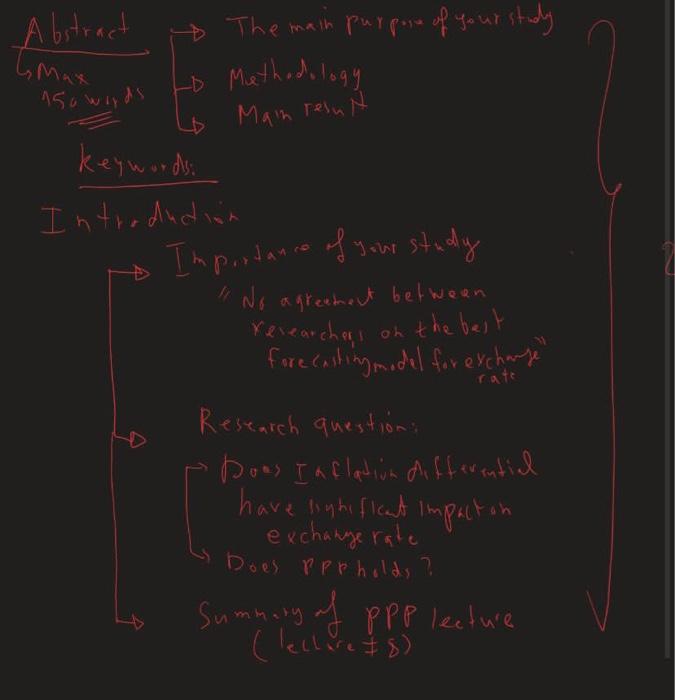 Abstract
Max
150 words
The main purpose of your study
Methodology
Main result
Keywords:
Introduction
Importance of your study
"No agreement between
researchers on the best
forecasting model for exchange"
rate
Research question:
Does Inflation differential
have significant impact on
exchange rate
Does PPP holds?
Summary of PPP lecture
(lecture # 8)
2